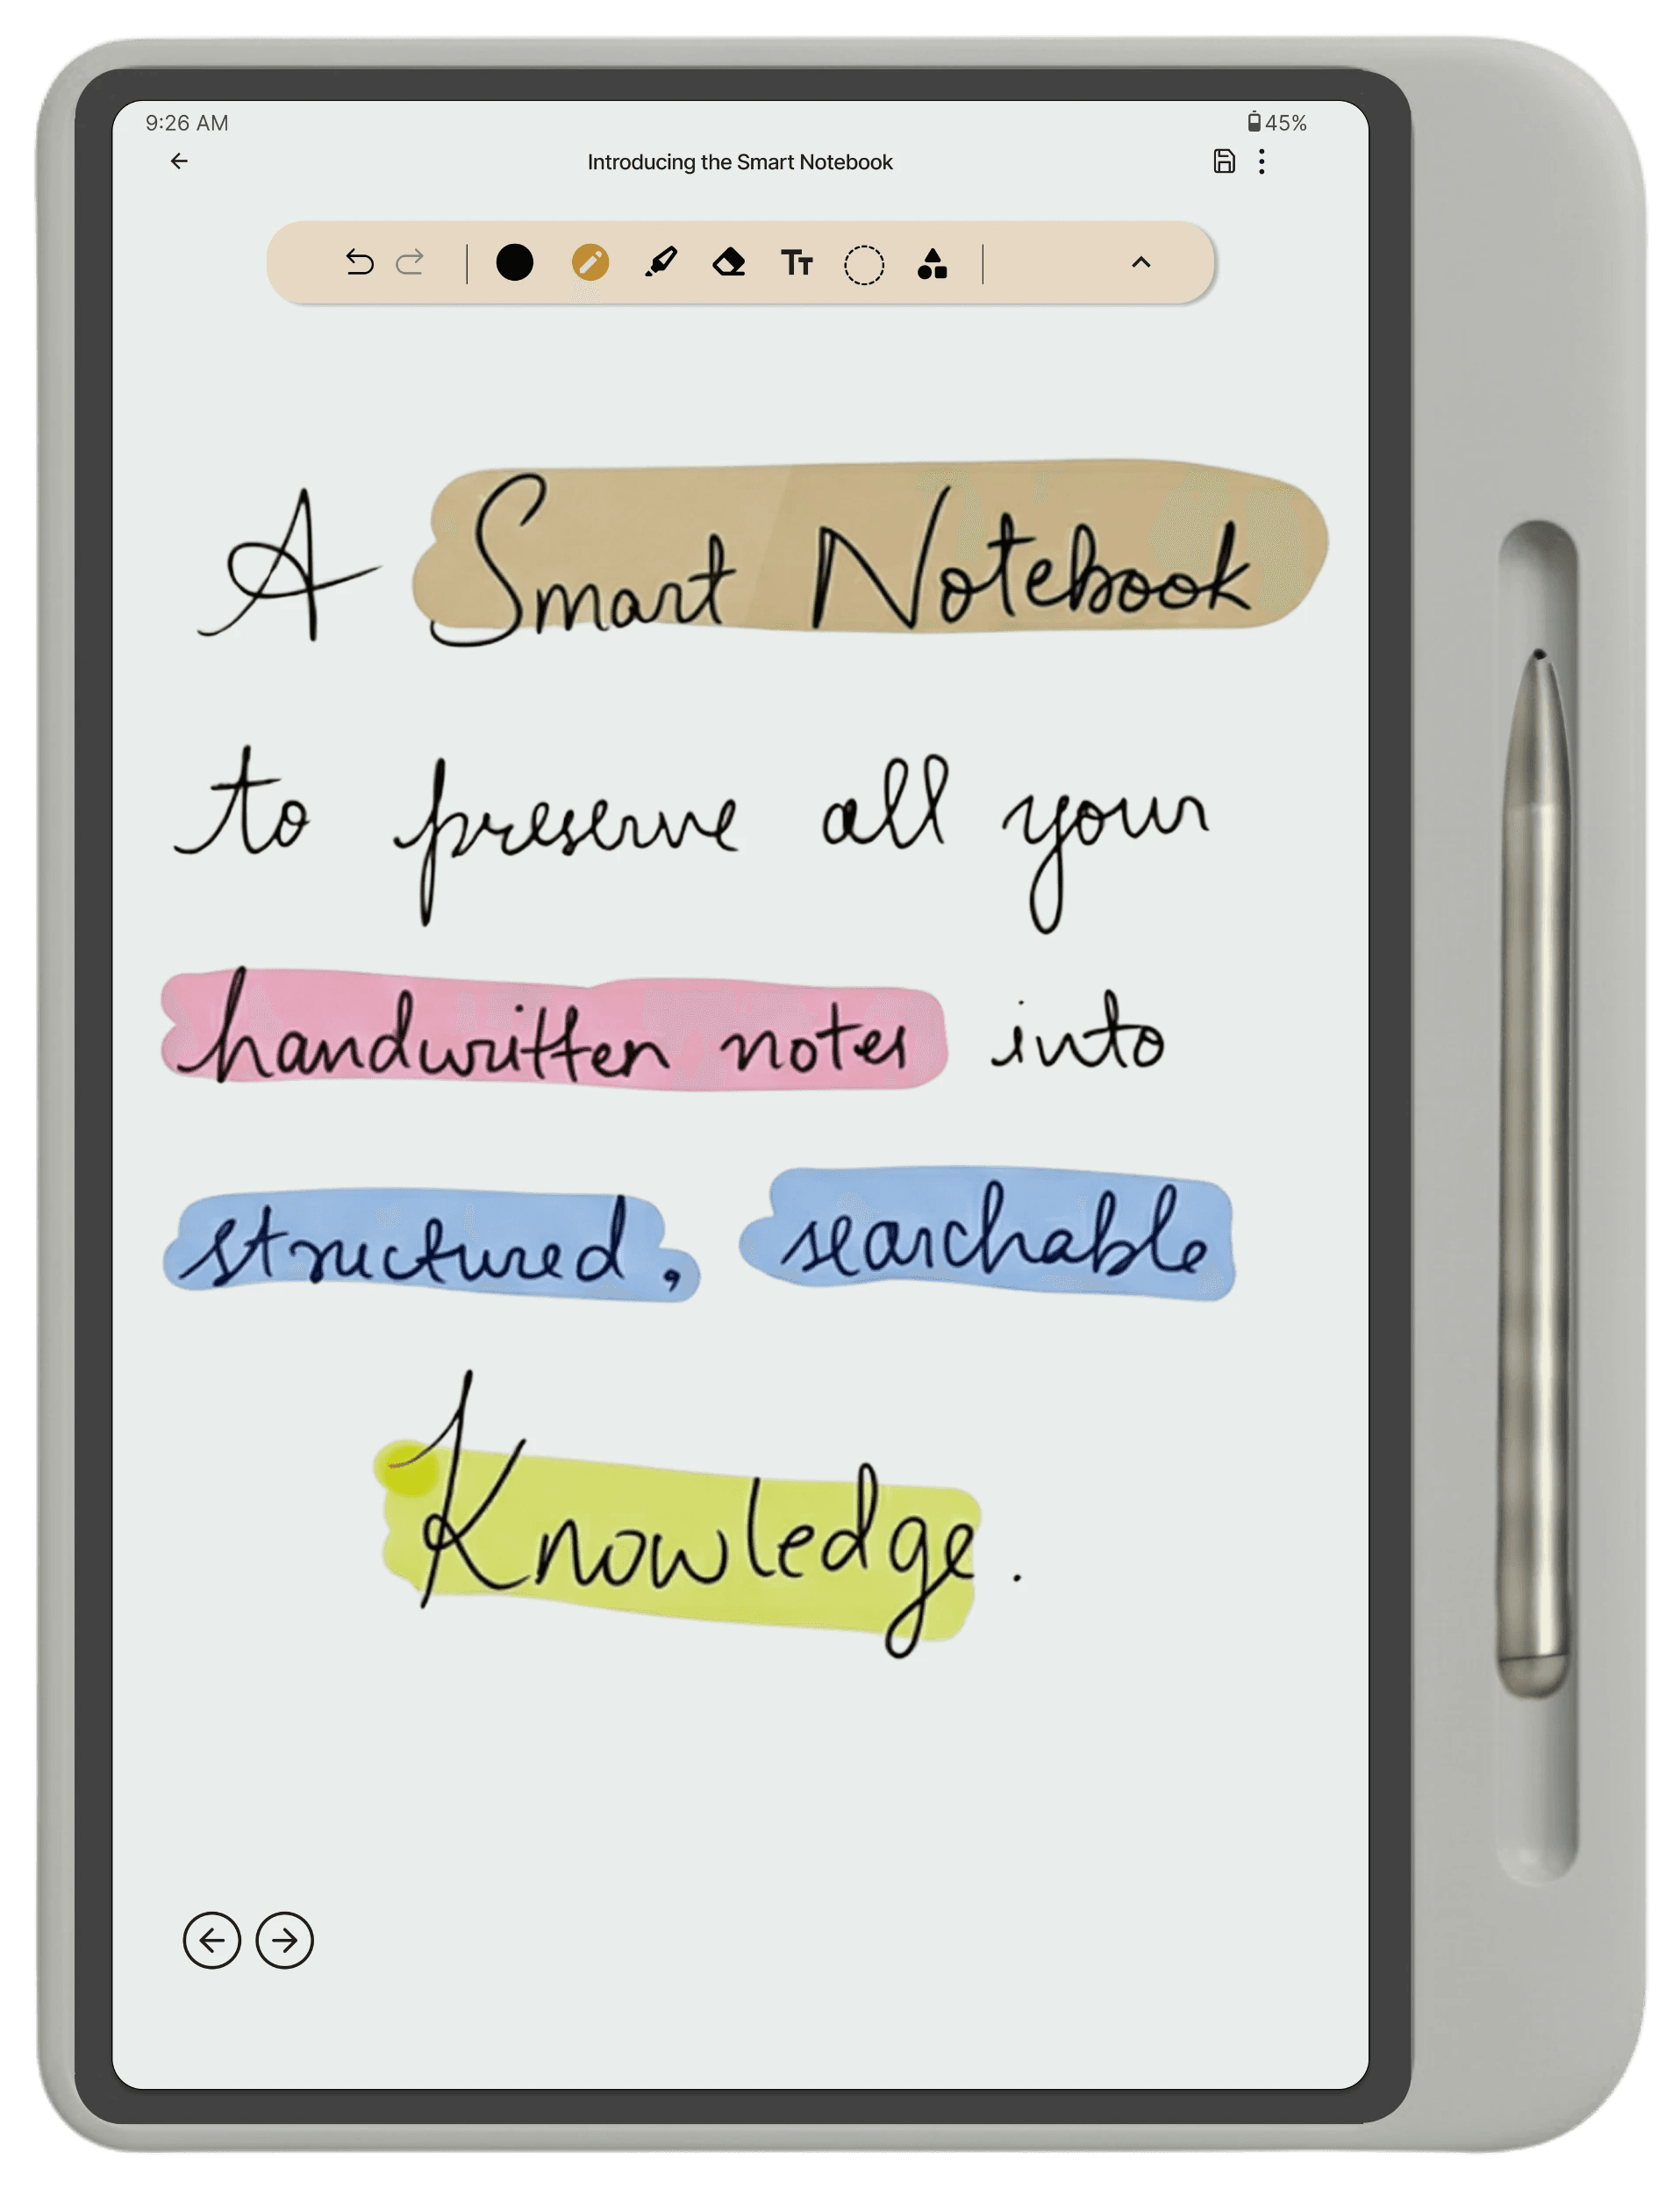 9:26 AM 45%
Introducing the Smart Notebook
Tt
A Smart Notebook
to preserve all your
handwritten notes into
structured, searchable
Knowledge.